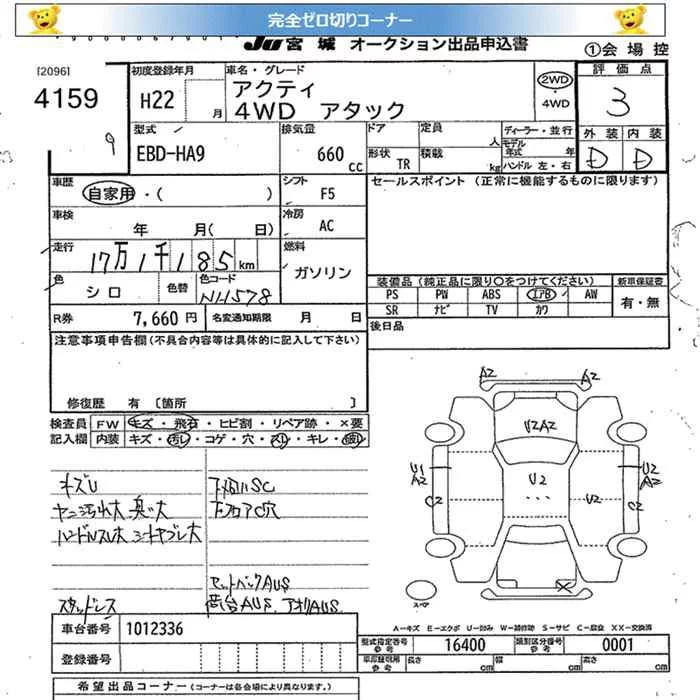 完全ゼロ切りコーナー
JU 宮 城 オークション出品申込書
①会 場 控
[2096]
4159
9
初度登録年月
H22 月
車名・グレード
アクティ
4WD アタック
2WD
・
4WD
評 価 点
3
外 装 内 装
D D
型式
EBD-HA9
排気量
660 cc
ドア
形状 TR
定員 人
積載 kg
ディーラー・並行
モデル年式 年
ハンドル 左・右
車歴
自家用・( )
シフト
F5
セールスポイント (正常に機能するものに限ります)
車検
年 月( 日)
冷房
AC
走行
17万1千185km
燃料
ガソリン
色
シロ
色替
色コード
NH578
装備品(純正品に限り○をつけてください)
新車保証書
PS PW ABS エアB AW
SR ナビ TV カワ
有・無
R券 7,660円 名変通知期限 月 日
後日品
注意事項申告欄(不具合内容等は具体的に記入して下さい)
修復歴 有 〔箇所 〕
検査員
記入欄
FW キズ・飛石・ヒビ割・リペア跡・×要
内装 キズ・汚レ・コゲ・穴・スレ・キレ・破レ
キズU
ヤニ汚れ大 臭い大
ハンドルスレ大 シートヤブレ大
スタッドレス
下メクレSC
下フロアC穴
セットバックAUS
荷台AUS アオリAUS
A2 A2
U2A2
U1
A2
C2
U2
U2
U2
A2
C2
×
スペア
A−キズ E−エクボ U−凹み W−補修跡 S−サビ C−腐食 XX−交換済
車台番号 1012336
登録番号
型式指定番号
参 考
16400
類別区分番号
参 考
0001
車庫証明用
参 考
長さ cm 幅 cm 高さ cm
希 望 出 品 コ ー ナ ー (コーナーは各会場により異なります。)